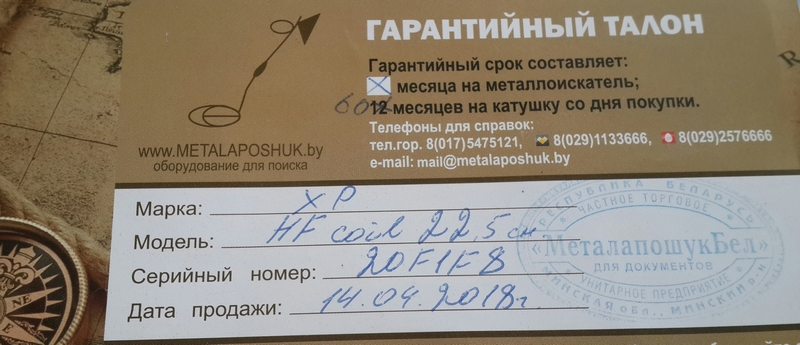 ГАРАНТИЙНЫЙ ТАЛОН
Гарантийный срок составляет:
месяца на металлоискатель;
12 месяцев на катушку со дня покупки.
Телефоны для справок:
тел.гор. 8(017)5475121, 8(029)1133666, 8(029)2576666
e-mail: mail@metalaposhuk.by
www.METALAPOSHUK.by
оборудование для поиска
Марка: XP
Модель: HF coil 22,5 см
Серийный номер: 20F1F8
Дата продажи: 14.04.2018г.
РЕСПУБЛИКА БЕЛАРУСЬ
ЧАСТНОЕ ТОРГОВОЕ
«МеталапошукБел»
ДЛЯ ДОКУМЕНТОВ
УНИТАРНОЕ ПРЕДПРИЯТИЕ
МИНСКАЯ обл., МИНСКИЙ р-н
NE
E